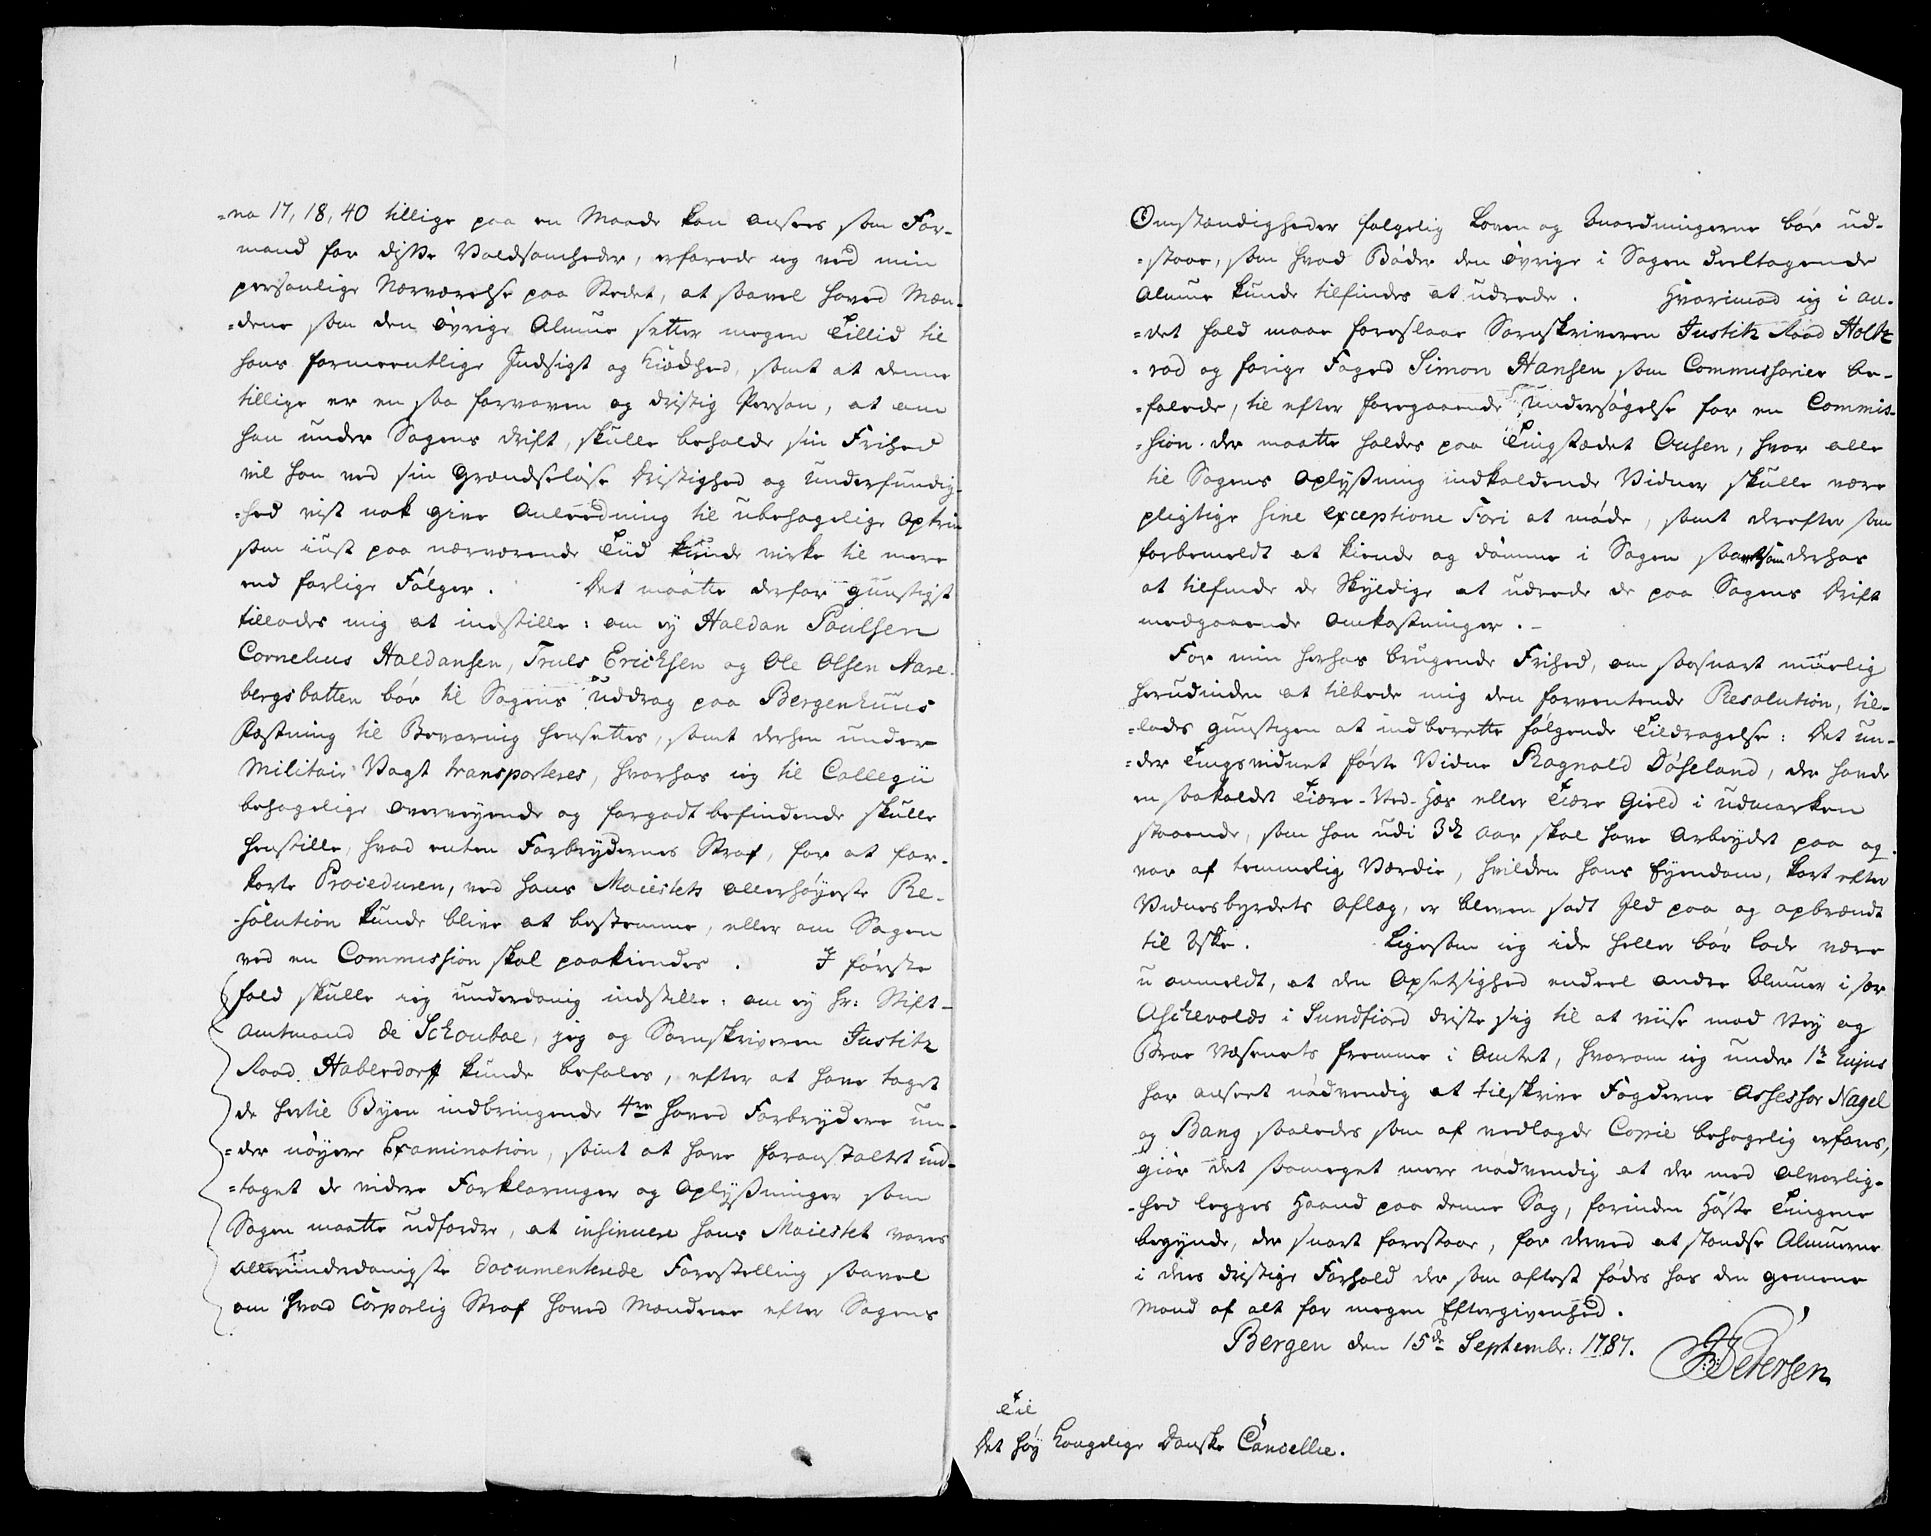 =na 17, 18, 40 tillige paa en Maade kan ansees som For-
mand for disse Voldsomheder, erfarede ieg ved min
personlige Nærværelse paa Stedet, at saavel Hoved Mæn-
=dene som den øvrige Almue setter megen Tillid til
hans formeentlige Indsigt og Kiækhed, samt at denne
tillige er en saa forvoven og dristig Person, at om
han under Sagens Drift, skulle beholde sin Frihed
vil han ved sin Grændseløse Dristighed og Underfundig-
=hed vist nok give Anleedning til ubehagelige Optrin
som iust paa nærværende Tiid kunde virke til mere
end farlige Følger. Det maatte derfor gunstigst
tillades mig at indstille: om ey Haldan Poulsen
Cornelius Haldansen, Truls Erichsen og Ole Olsen Aare-
bergsbotten bør til Sagens Uddrag paa Bergenhuus
Fæstning til Bevaring hensettes, samt derhen under
Militair Vagt transporteres, hvorhos ieg til Collegii
behagelige Overveyende og forgodtbefindende skulle
henstille, hvad enten Forbrydernes Straf, for at for-
korte Proceduren, ved Hans Maiestets allerhøyeste Re-
-solution kunde blive at bestemme, eller om Sagen
ved en Commission skal paakiendes. I første
fald skulle ieg underdanig indstille: om ey Hr: Stift-
Amtmand de Schouboe, jeg og Sorenskriveren Justitz
Raad Haberdorff kunde befales, efter at have taget
de hertil Byen indbringende 4re Hoved Forbrydere un-
=der nøyere Examination, samt at have foranstaltet ind-
=taget de videre Forklaringer og Oplysninger som
Sagen maatte udfordre, at insinuere Hans Maiestet vores
allerunderdanigste documenterede Forestilling saavel
om hvad Corporlig Straf Hoved Mændene efter Sagens
Omstændigheder følgelig Loven og Anordningerne bør ud-
=staae, som hvad Bøder den øvrige i Sagen deeltagende
Almue kunde tilfindes at udrede. Hvorimod ieg i an-
=det fald maae foreslaae Sorenskriveren Justitz Raad Holtz
= rod og forige Foged Simon Hansen som Commissarier be-
=falede, til efter foregaaende Undersøgelse for en Commis-
=sion der maatte holdes paa Tingstædet Ousen, hvor alle
til Sagens Oplysning indkaldende Vidner skulle være
pligtige sine exceptione Fori at møde, samt derefter som
forbemeldt at kiende og dømme i Sagen saavelsom derhos
at tilfinde de Skyldige at udrede de paa Sagens Drift
medgaaende Omkostninger. -
For min herhos brugende Frihed, om saasnart muelig
herudinden at tilbede mig den forventende Resolution, til-
=lades gunstigen at indberette følgende Tildragelse: Det un-
=der Tingsvidnet førte Vidne Ragnald Døseland, der havde
en saakaldet Tiære-Ved-Hæs eller Tiære Gield i Udmarken
staaende, som han udi 3de Aar skal have Arbeydet paa og
var af temmelig Værdie, hvilden hans Eyendom, kort efter
Vidnesbyrdets Aflæg, er bleven sadt Ild paa og opbrændt
til Aske. Ligesom ieg icke heller bør lade være
u anmeldt, at den Opsetsighed endeel andre Almuer i sær
Aschevolds i Sundfiord driste sig til at viise mod Vey og
Broe Væsenets fremme i Amtet, hvorom ieg under 1te hujus
har anseet nødvendig at tilskrive Fogderne Assessor Nagel
og Bang saaledes som af vedlagde Copie behagelig erfares,
giør det saameget mere nødvendig at der med Alvorlig-
-hed legges Haand paa denne Sag, forinden Høste Tingene
begynde, der snart forestaae, for derved at standse Almuerne
i deres dristige Forhold der som oftest fødes hos den gemene
Mand af alt for megen Eftergivenhed.
Bergen den 15de Septembr: 1787.
Petersen
Til
Det høy Kongelige Danske Cancellie.